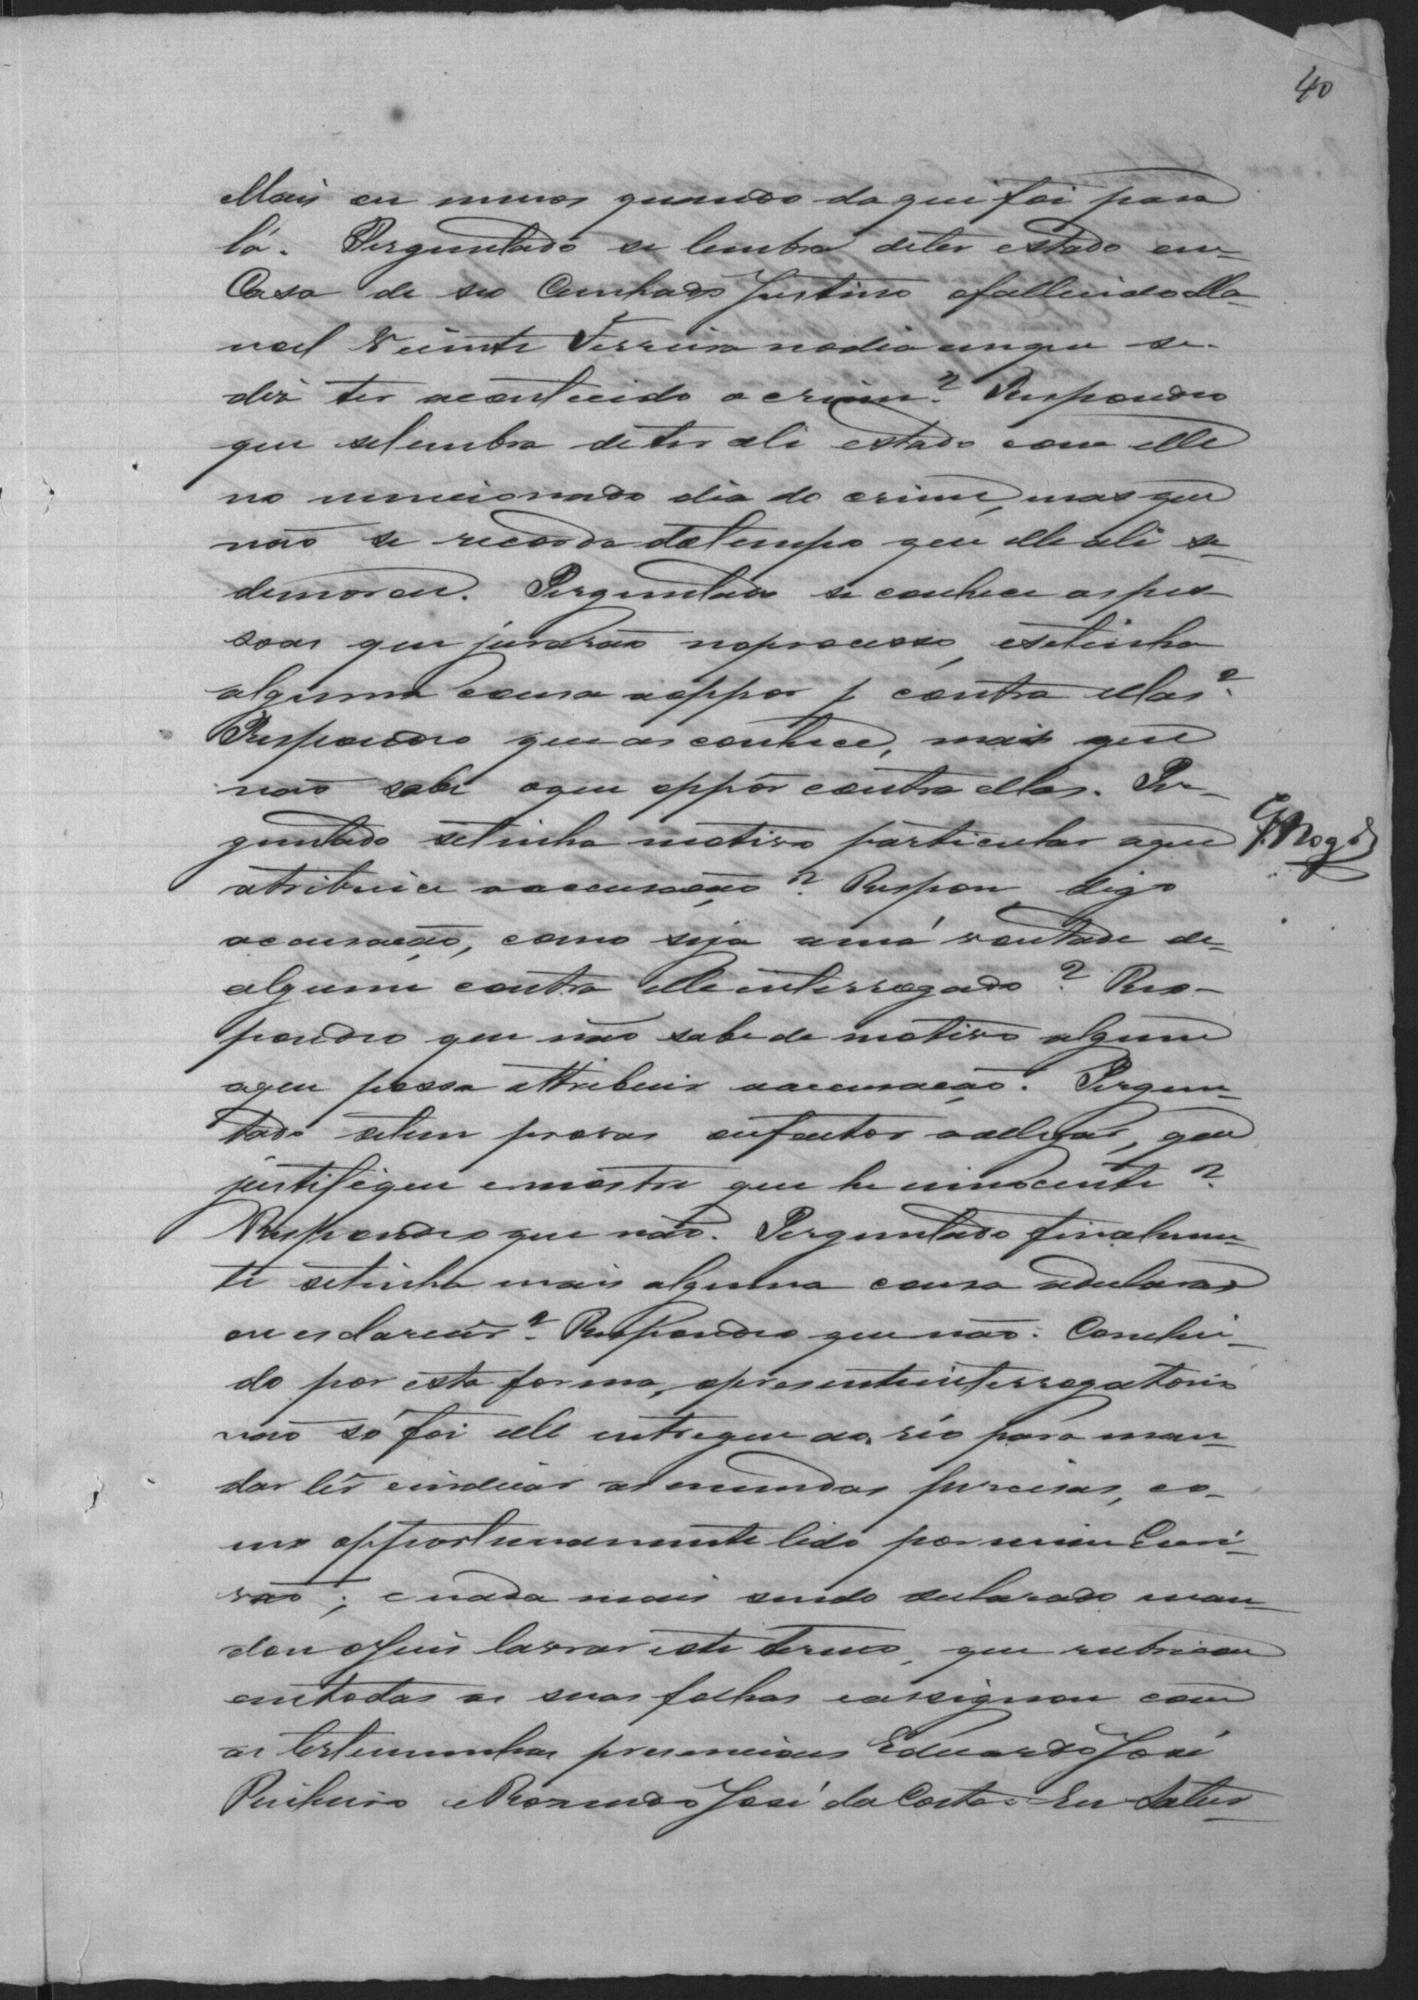 40
Mais ou menos quando daqui foi para
lá. Perguntado se lembra deter estado em
Casa de seo Cunhado Justino ofallecido Ma-
noel Vicente Ferreira nodia emque se-
diz ter acontecido o crime? Respondeo
que selembra deter ali estado com elle
no mencionado dia do crime, mas que
não se recorda dotempo que elle ali se
demorou. Perguntado se conhece aspes-
soas que jurarão noprocesso, esetinha
alguma cousa aoppor contra ellas?
Respondeo que as conhece, mais que
não sabe oque oppôr contra ellas. Per-
guntado setinha motivo particular aque
attribuia aaccusação? Respon, digo
accusação, como seja amá vontade de
alguem contra elle interrogado? Res-
pondeo que não sabe de motivo algum
aque possa attribuir aaccusação. Pergun-
tado setem provas oufactos aallegar, que
justifique emostre que he innocente?
Respondeo que não. Perguntado finalmen-
te setinha mais alguma cousa adeclarar
ou esclarecer? Respondeo que não. Conclui-
do por esta forma, opresente interrogatorio
não só foi elle entregue ao réo para man-
dar lêr eindicar as emendas precisas, co-
mo opportunamente lido por mim Escri-
vão; enada mais sendo declarado man-
dou oJuis lavrar este termo, que rubricou
emtodas as suas folhas eassignou com
as testemunhas presenciaes Eduardo José
Pinheiro eRozendo José da Costa. Eu Satur-